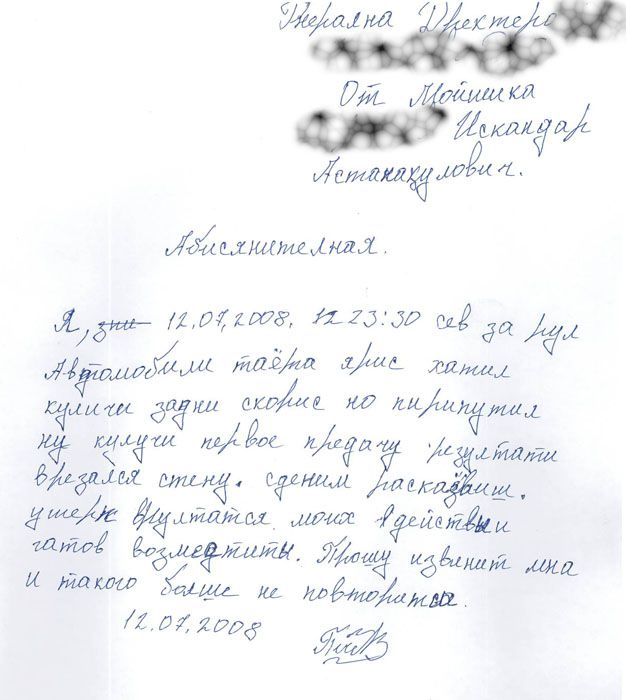 Генералиа Дректеро
От Мойшика
Искандар
Астанакулович.
Абисянителная.
Я, 12.07,2008. 12 23:30 сев за рул
Автомобили таёта ярис хатил
куличи задни скорис но пирипутил
ну кулучи первое предачу резултати
врезался стену. сденим раскаёваиш.
ушерп врултатся моих действыи
гатов возмедтиты. Прошу извинит мна
и такого болше не повторится.
12.07.2008